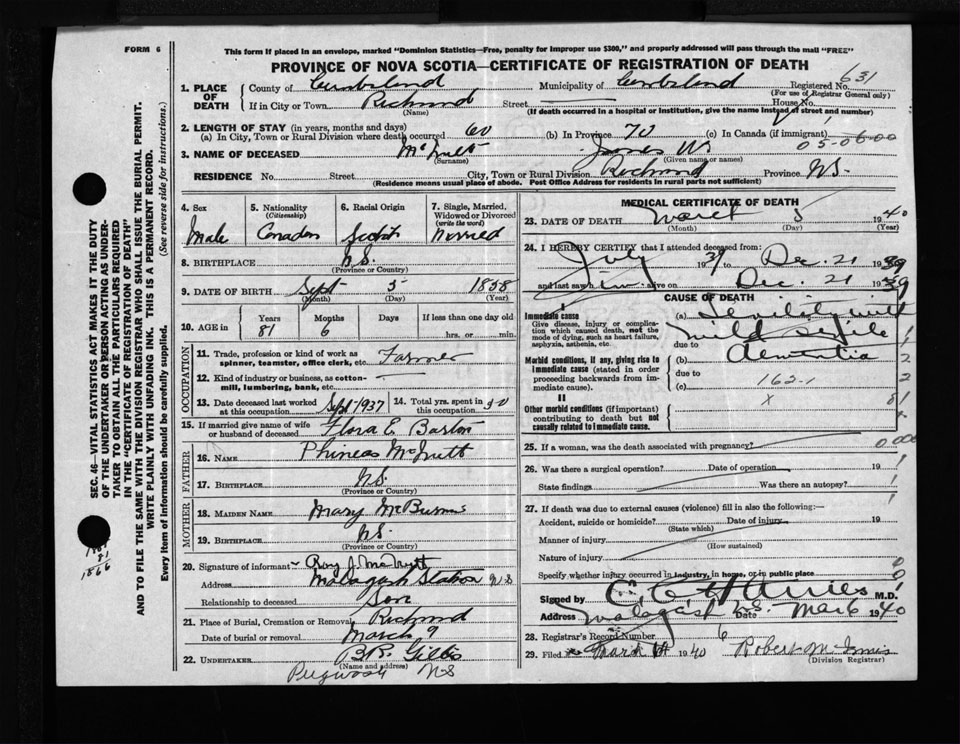 FORM 6
This form if placed in an envelope, marked "Dominion Statistics—Free, penalty for improper use $300," and properly addressed will pass through the mail "FREE"
PROVINCE OF NOVA SCOTIA—CERTIFICATE OF REGISTRATION OF DEATH
631
1. PLACE OF DEATH
County of Cumberland Municipality of Cumberland Registered No.
(For use of Registrar General only)
If in City or Town Richmond Street House No.
(Name) (If death occurred in a hospital or institution, give the name instead of street and number)
2. LENGTH OF STAY (in years, months and days)
(a) In City, Town or Rural Division where death occurred 60 (b) In Province 70 (c) In Canada (if immigrant)
05-06-00
3. NAME OF DECEASED McNutt James W.
(Surname) (Given name or names)
RESIDENCE No. Street City, Town or Rural Division Richmond Province N.S.
(Residence means usual place of abode. Post Office Address for residents in rural parts not sufficient)
4. Sex Male
5. Nationality (Citizenship) Canadian
6. Racial Origin Scotch
7. Single, Married, Widowed or Divorced (write the word) Married
8. BIRTHPLACE N.S.
(Province or Country)
9. DATE OF BIRTH Sept 5 1858
(Month) (Day) (Year)
10. AGE in Years Months Days If less than one day old
81 6 hrs. or min.
OCCUPATION
11. Trade, profession or kind of work as spinner, teamster, office clerk, etc. Farmer
12. Kind of industry or business, as cotton-mill, lumbering, bank, etc.
13. Date deceased last worked at this occupation Sept 1937 14. Total yrs. spent in this occupation 50
15. If married give name of wife or husband of deceased Flora E. Barton
FATHER
16. NAME Phineas McNutt
17. BIRTHPLACE N.S.
(Province or Country)
MOTHER
18. MAIDEN NAME Mary McBurnie
19. BIRTHPLACE N.S.
(Province or Country)
20. Signature of informant Roy J. McNutt
Address Malagash Station N.S
Relationship to deceased Son
21. Place of Burial, Cremation or Removal Richmond
Date of burial or removal March 9
22. UNDERTAKER B.R. Gillis
(Name and address)
Pugwash N-S
MEDICAL CERTIFICATE OF DEATH
23. DATE OF DEATH March 5 1940
(Month) (Day) (Year)
24. I HEREBY CERTIFY that I attended deceased from:
July 1939 to Dec. 21 1939
and last saw him alive on Dec. 21 1939
CAUSE OF DEATH
I
Immediate cause
Give disease, injury or complication which caused death, not the mode of dying, such as heart failure, asphyxia, asthenia, etc.
(a) Senility with
mild senile
due to
Morbid conditions, if any, giving rise to immediate cause (stated in order proceeding backwards from immediate cause).
(b) dementia
due to
(c) 162-1
II
Other morbid conditions (if important) contributing to death but not causally related to immediate cause.
X
25. If a woman, was the death associated with pregnancy?
26. Was there a surgical operation? Date of operation 19
State findings Was there an autopsy?
27. If death was due to external causes (violence) fill in also the following:—
Accident, suicide or homicide? Date of injury 19
(State which)
Manner of injury
(How sustained)
Nature of injury
Specify whether injury occurred in industry, in home, or in public place
Signed by M.D.
Address Malagash N.S. Date Mar 6 1940
28. Registrar's Record Number 6
29. Filed 1940 Robert McInnis
(Division Registrar)
SEC. 46—VITAL STATISTICS ACT MAKES IT THE DUTY
OF THE UNDERTAKER OR PERSON ACTING AS UNDER-
TAKER TO OBTAIN ALL THE PARTICULARS REQUIRED
IN THE "CERTIFICATE OF REGISTRATION OF DEATH"
AND TO FILE THE SAME WITH THE DIVISION REGISTRAR WHO SHALL ISSUE THE BURIAL PERMIT.
WRITE PLAINLY WITH UNFADING INK. THIS IS A PERMANENT RECORD.
Every item of information should be carefully supplied. (See reverse side for instructions.)
81
1866